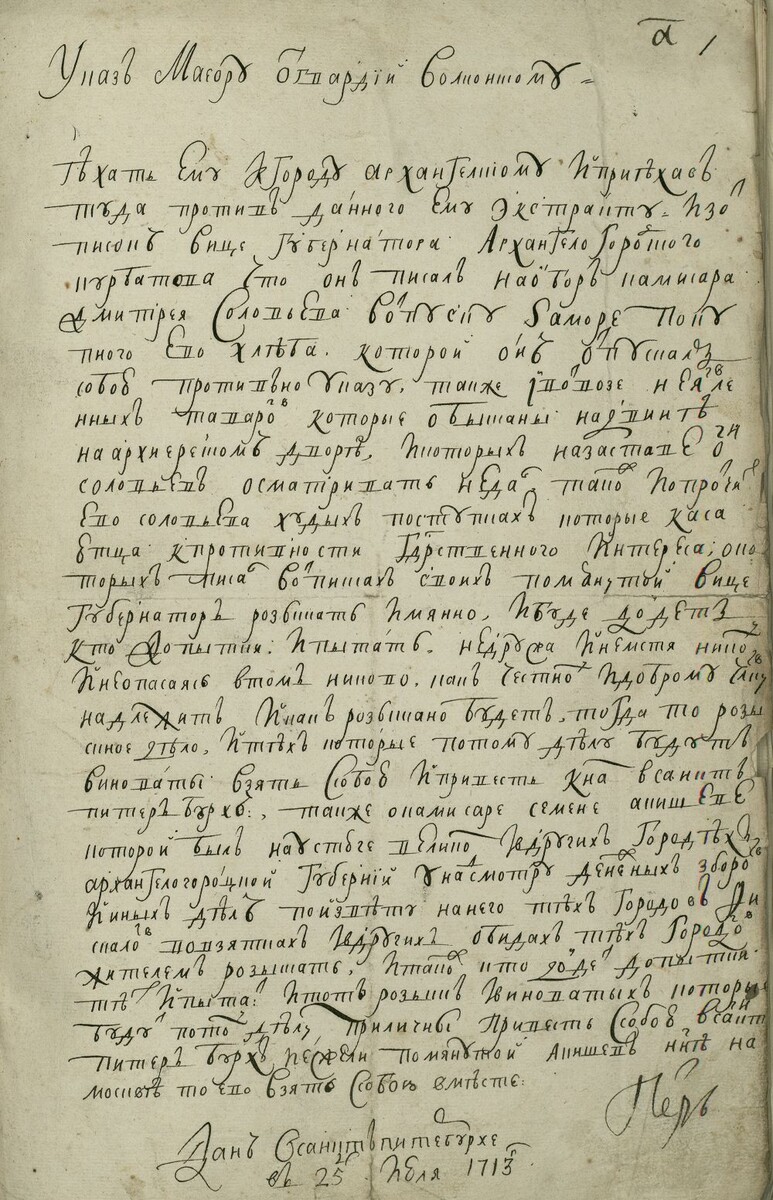 а 1
Указъ Маеору от гвардiй Волконскому
ѣхать Ему к городу архангелскому Й приѣхавъ
туда противъ данного Ему экстракту Изо
писемъ вице губернатора Архангелогороцкого
курбатова что онъ писалъ на обѣръ камисара
дмитрея Соловьева в отпуску заморе
тного Ево хлѣба. которой онъ отпускалъ
собою противъно указу, также i о провозе неявле
нныхъ товаровъ которые обысканы на двинѣ
на архиерейскомъ дворѣ, И которыхъ на заставе
соловьевъ осматривать не далъ, також И о протчихъ
Ево соловьева худыхъ поступкахъ которые каса
ютца к противности Гдрственного Интереса; о ко
торыхъ писалъ в писмахъ своихъ помянутой вице
губернаторъ розыскать Имянно, И буде до детъ
кто до пытки. И пытать. не дружа Й не мстя никому
Й не опасаясь в томъ никого, какъ честному И доброму члку
надлежитъ Й какъ розыскано будетъ, тогда то розы
скное дѣло, И тѣхъ которые по тому дѣлу будутъ
виноваты взять с собою И привесть к намъ в санктъ
питеръ бурхъ, также о камисаре семене акишеве
которой былъ на устюге велико И в другихъ городѣхъ
архангелогороцкой губернiй у надсмотру денежныхъ зборовъ
Й иныхъ дѣлъ по извѣту на него тѣхъ городов
о взяткахъ И в другихъ обидахъ тѣхъ городовъ
жителемъ розыскать, И також кто доидетъ до пытки
тѣхъ Й пытать. И тотъ розыскъ И виноватыхъ которые
будутъ по тому дѣлу приличны привесть с собою в санктъ
питеръ бурхъ, Ежели помянутой Акишевъ ннѣ на
москвѣ то ево взять с собою вмѣсте.
Петръ
Данъ в санктъпитебурхе
въ 25 Июля 1713